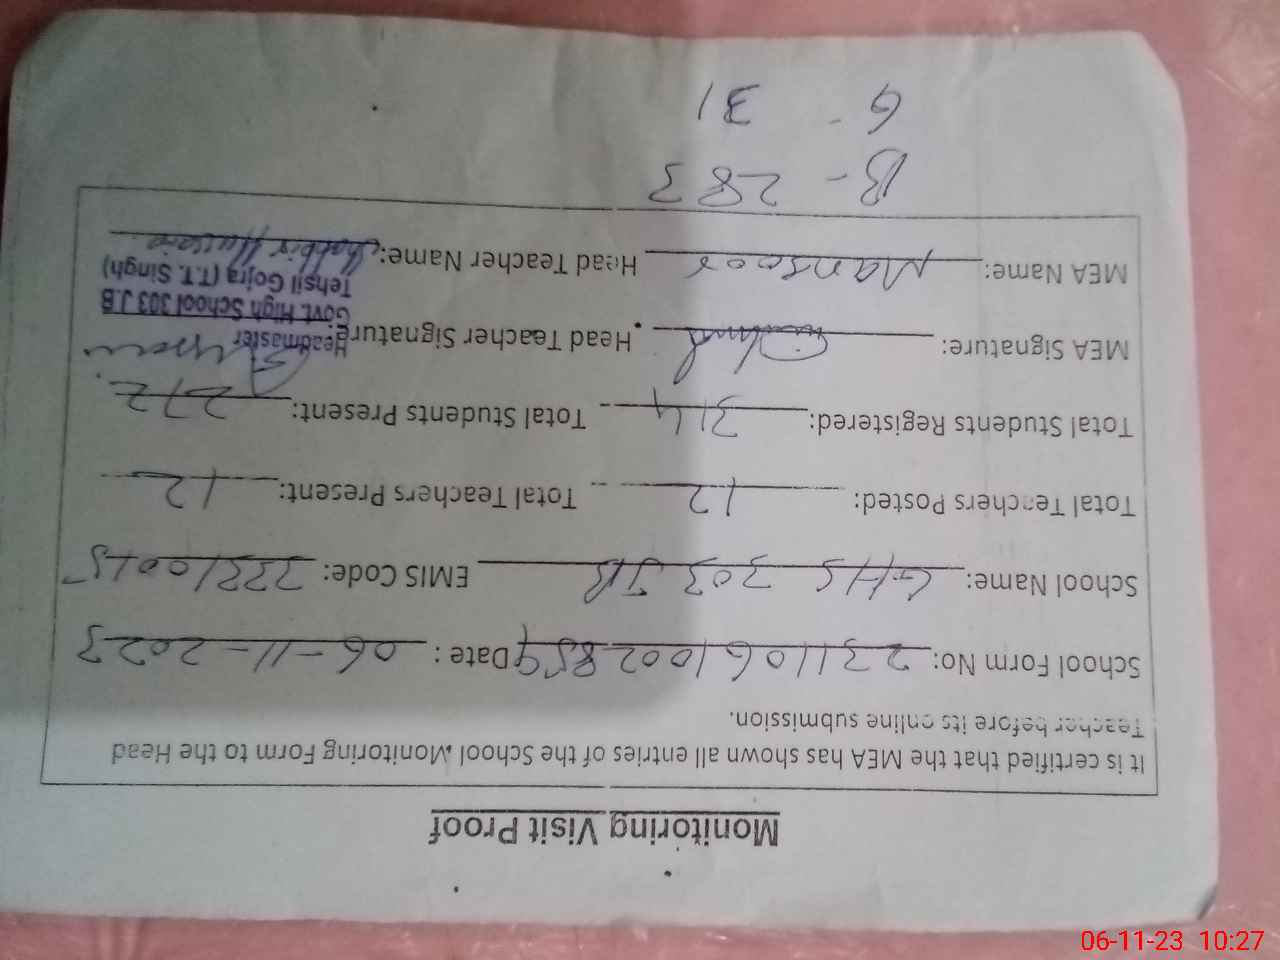 Monitoring Visit Proof
It is certified that the MEA has shown all entries of the School Monitoring Form to the Head
Teacher before its online submission.
School Form No: 2311061002859 Date: 06-11-2023
School Name: GHS 303 JB EMIS Code: 33310015
Total Teachers Posted: 12 Total Teachers Present: 12
Total Students Registered: 314 Total Students Present: 272
MEA Signature: Head Teacher Signature:
Headmaster
Govt. High School 303 J.B
Tehsil Gojra (T.T. Singh)
MEA Name: Mansoor Head Teacher Name: Shabbir Hussain
B - 283
G - 31
06-11-23 10:27